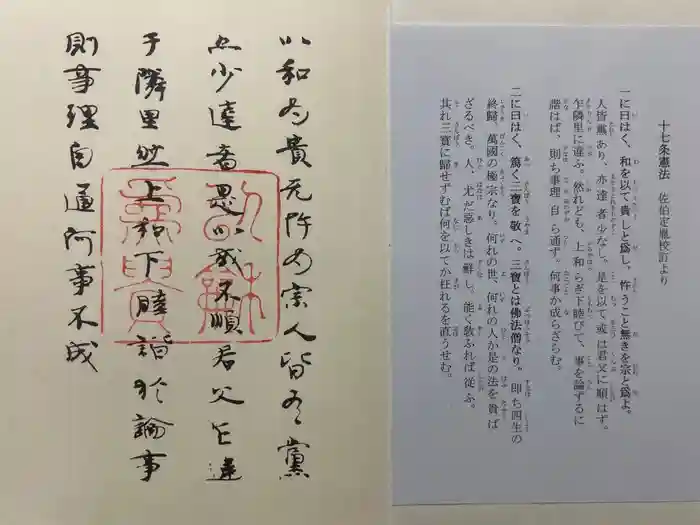 十七条憲法 佐伯定胤校訂より
一に曰はく、和を以て貴しと爲し、忤うこと無きを宗と爲よ。
人皆黨あり、亦達者少なし。是を以て或は君父に順はず。
乍隣里に違ふ。然れども、上和らぎ下睦びて、事を論ずるに
諧はば、則ち事理自ら通ず。何事か成らざらむ。
二に曰はく、篤く三寶を敬へ。三寶とは佛法僧なり。即ち四生の
終歸、萬國の極宗なり。何れの世、何れの人か是の法を貴ば
ざるべき。人、尤だ惡しきは鮮し。能く敎ふれば從ふ。
其れ三寶に歸せずむば何を以てか枉れるを直うせむ。
以和為貴无忤為宗人皆有黨
亦少達者是以或不順君父乍違
于隣里然上和下睦諧於論事
則事理自通何事不成